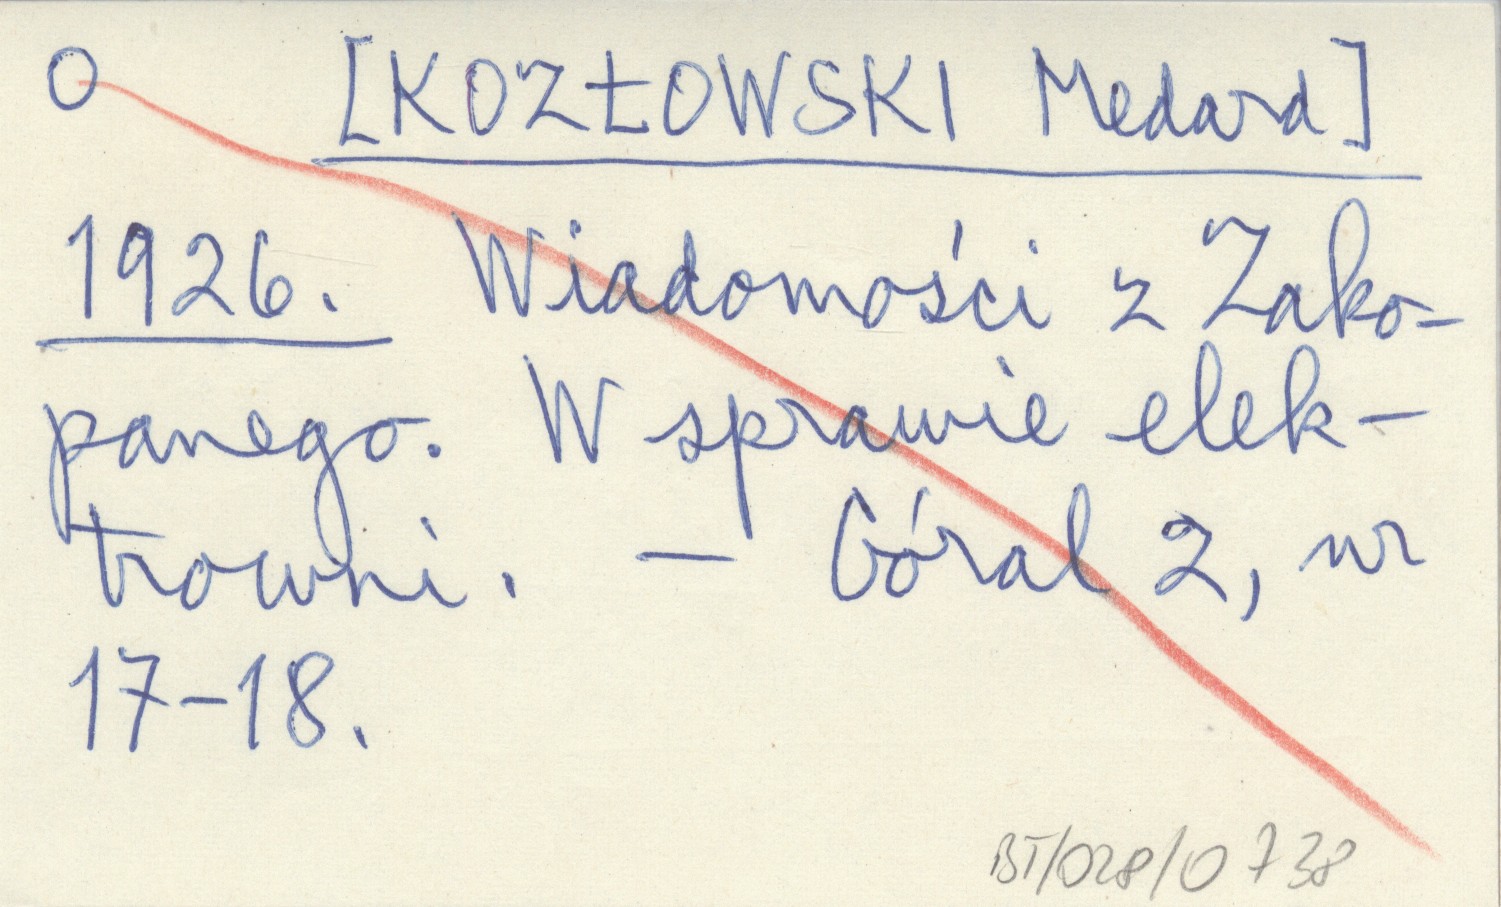 O [KOZŁOWSKI Medard]
1926. Wiadomości z Zako-
panego. W sprawie elek-
trowni. — Góral 2, nr
17-18.
BT/028/0738